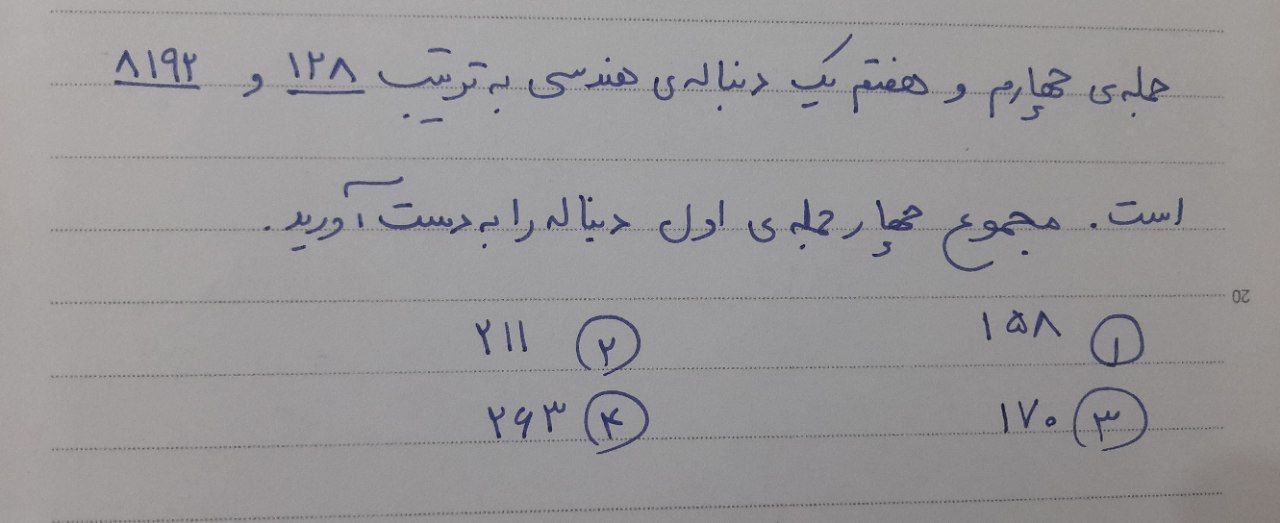 جمله‌ی چهارم و هفتم یک دنباله‌ی هندسی به ترتیب ۱۲۸ و ۸۱۹۲
است. مجموع چهار جمله‌ی اول دنباله را به دست آورید.
20
۱ ۱۵۸ ۲ ۲۱۱
۳ ۱۷۰ ۴ ۲۶۳